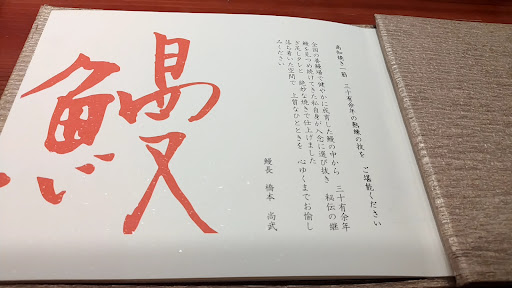 高知焼き一筋 三十有余年の熟練の技を ご堪能ください
全国の養鰻場で健やかに成育した鰻の中から 三十有余年
鰻を見つめ続けてきた私自身が入念に選び抜き 秘伝の継
ぎ足しタレと 絶妙な焼きで仕上げました
落ち着いた空間で 上質なひとときを 心ゆくまでお愉し
みください
鰻長 橋本 尚武
鰻